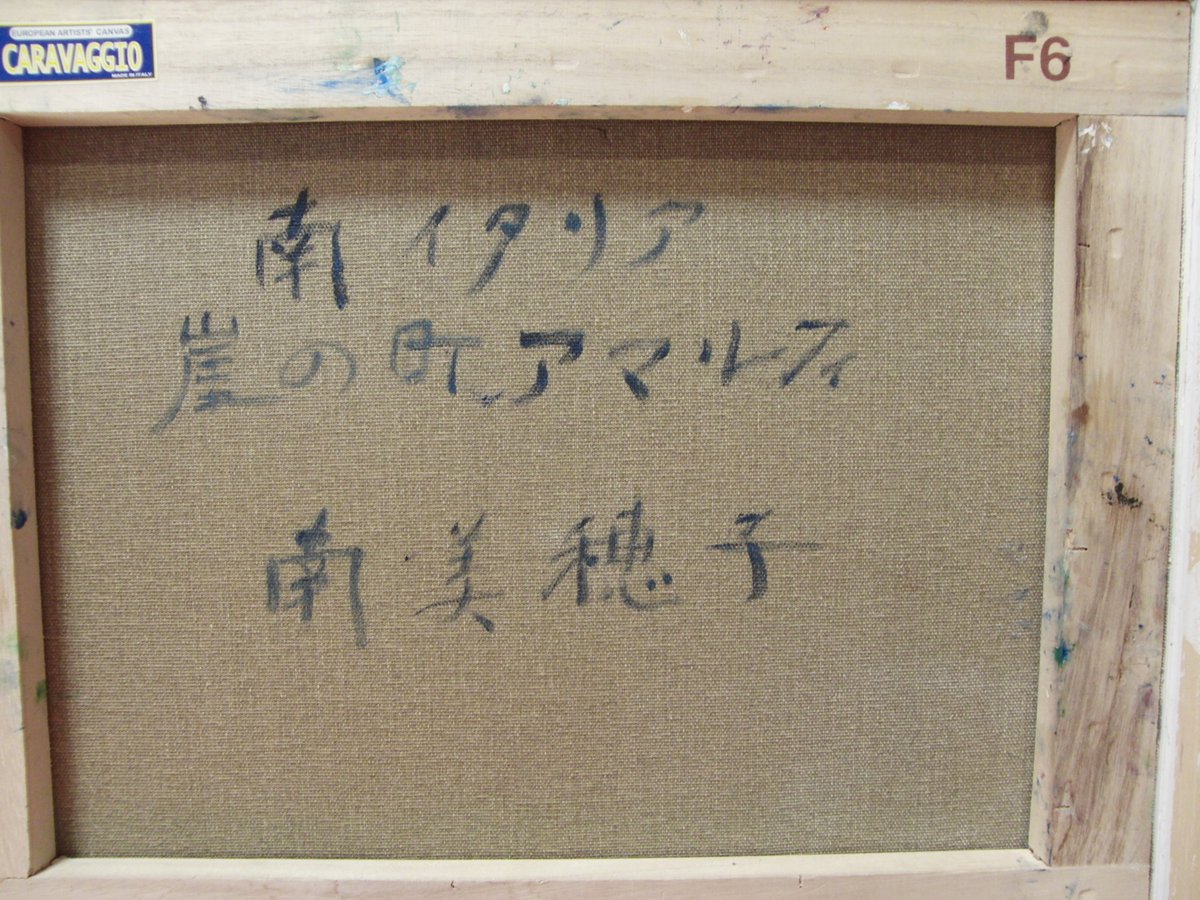 EUROPEAN ARTISTS' CANVAS
CARAVAGGIO
MADE IN ITALY
F6
南イタリア
崖の町アマルフィ
南美穂子